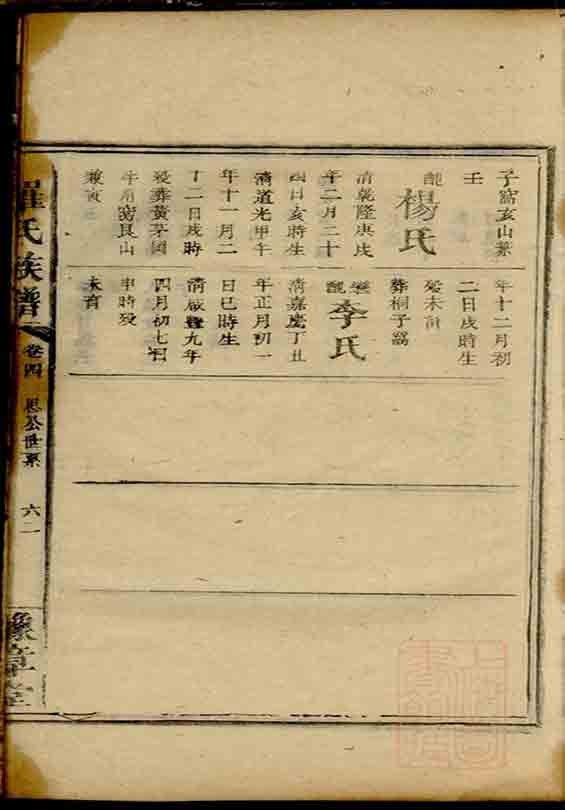 子窩亥山
壬
配楊氏
清乾隆庚戌
年二月二十
四日亥時生
清道光甲午
年十一月二
十二日戌時
歿葬黃茅園
牛角窩艮山
兼寅
年十二月初
二日戌時生
歿未詳
葬桐子窩
配李氏
清嘉慶丁丑
年正月初一
日巳時生
清咸豐九年
四月初七日
申時歿
未育
羅氏族譜
卷四
思公世系
六二
豫章堂